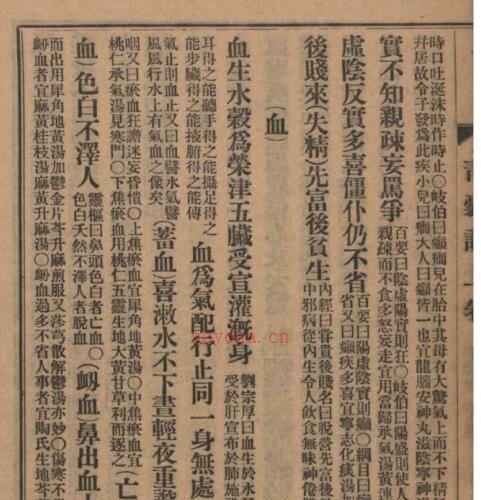 時口吐涎沫時作時止○岐伯曰癲癇兒在胎中其母有大驚氣上而不下精
幷居故令子發爲此疾小兒曰癇大人曰癲皆一也宜龍腦安神丸滋陰寧神
實不知親疎妄罵爭
百要曰陰虛陽實則狂○岐伯曰陽盛則使
親疎而不食多怒妄走宜用當歸承氣湯黃連
虛陰反實多喜僵仆仍不省
百要曰陽虛陰實則癲○綱目曰
省又曰癲疾多喜宜寧志化痰湯
後賤來(失精)先富後貧生
內經曰嘗貴後賤名曰脫營先富後
中邪病從內生令人飲食無味神倦
(血)
血生水穀爲榮津五臟受宣灌漑身
劉宗厚曰血生於水
受於肝宣布於肺施
耳得之能聽手得之能攝足得之
能步臟得之能掖腑得之能傳
血爲氣配行止同一身無處
氣止則血止又曰血譬水氣譬
風風行水上有氣血之像矣
(蓄血)喜潄水不下晝輕夜重
咽又曰瘀血狂譫迷妄昏憒○上焦瘀血宜犀角地黃湯○中焦瘀血宜
桃仁承氣湯見寒門○下焦瘀血用桃仁五靈生地大黃甘草利而逐之
(亡
血)色白不澤人
靈樞曰鼻頭色白者亡血○
色白夭然不澤人者脫血
(衂血)鼻出血
而出用犀角地黃湯加鬱金片芩升麻煎服又茅葛散解鬱湯亦妙○傷寒不
衂血者宜麻黃桂枝湯麻黃升麻湯○衂血過多不省人事者宜陶氏生地芩